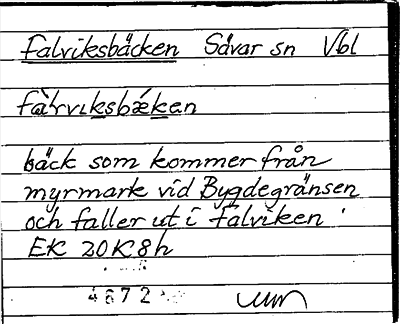 Falviksbäcken Sävar sn Vbl
bäck som kommer från
myrmark vid Bygdegränsen
och faller ut i Falviken.
EK 20K8h
4672